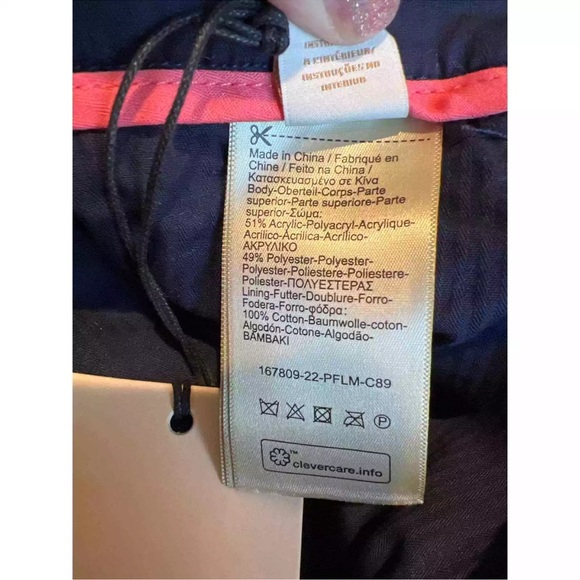 A L'INTÉRIEUR/
INSTRUÇÕES NO
INTERIOR
Made in China / Fabriqué en
Chine / Feito na China /
Κατασκευασμένο σε Κίνα
Body-Oberteil-Corps-Parte
superior-Parte superiore-Parte
superior-Σώμα:
51% Acrylic-Polyacryl-Acrylique-
Acrílico-Acrilica-Acrílico-
ΑΚΡΥΛΙΚΟ
49% Polyester-Polyester-
Polyester-Poliestere-Poliestere-
Poliester-ΠΟΛΥΕΣΤΕΡΑΣ
Lining-Futter-Doublure-Forro-
Fodera-Forro-φόδρα:
100% Cotton-Baumwolle-coton-
Algodón-Cotone-Algodão-
ΒΑΜΒΑΚΙ
167809-22-PFLM-C89
P
TM
clevercare.info